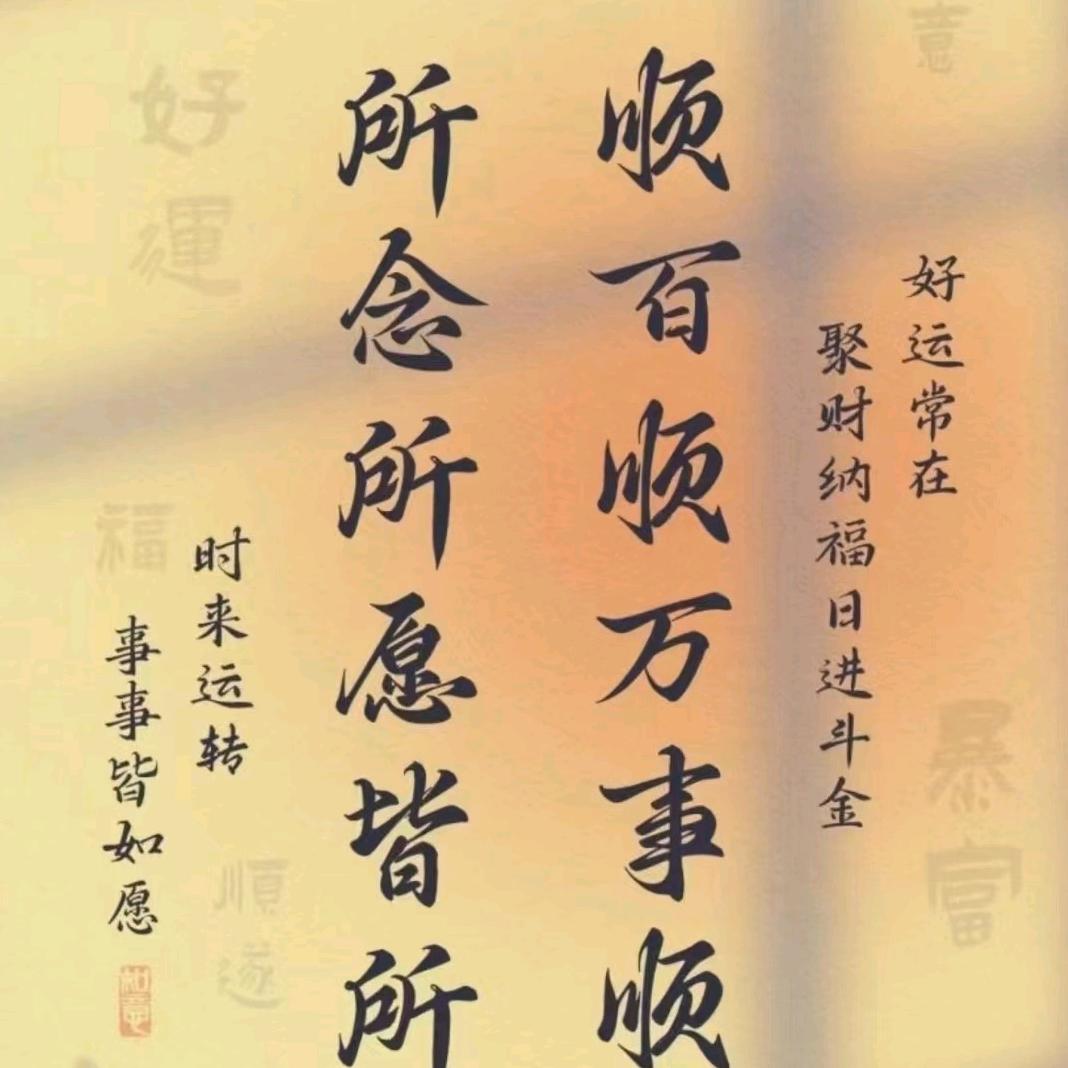 意
好运常在
聚财纳福日进斗金
暴富
顺百顺万事顺
所念所愿皆所
好運
時来运转
事事皆如愿
福
順遂
如意